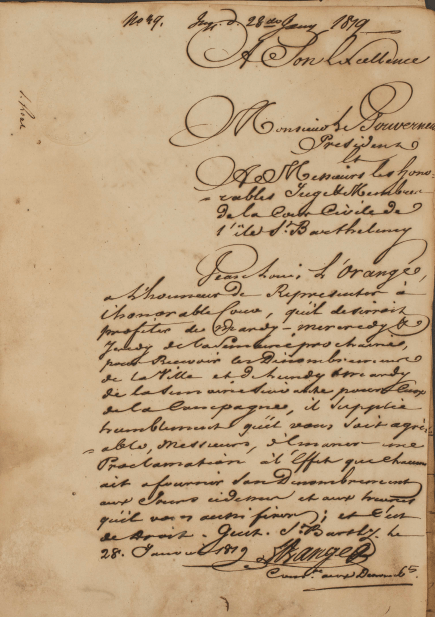 No 49. Ing. d. 28 de Janv 1819
A Son Excellence
Monsieur le Gouverneur
Président
et
A Messieurs les hono-
-rables Juges Membres
de la Cour Civile de
l'île St. Barthelemy
Jean Louis L'Orange,
a L'honneur De Representer à
l'honorable Cour, qu'il desireroit
profiter de Mardy-mercredy &
Jeudy de la Semaine prochaine,
pour Recevoir les Dénombrements
de la Ville et de Lundy & mardy
de la Semaine Suivante pour Ceux
de la Campagne, il Supplie
humblement qu'il vous Soit agré-
-able, Messieurs, d'émaner une
Proclamation à l'Effet que chacun
ait a fournir Son Dénombrement
aux Jours cidessus et aux heures
qu'il vous aussi fixer; et C'est
de Droit. Gust. St. Barthy. le
28. Janvier 1819
L'Orange